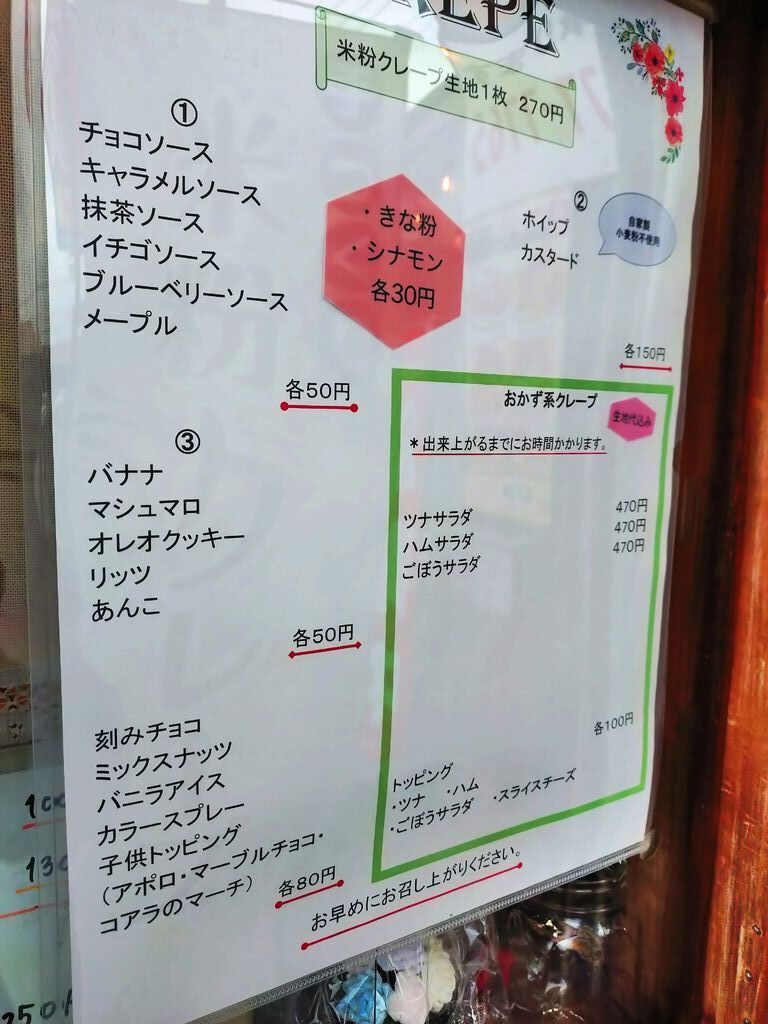 REPE
米粉クレープ生地1枚 270円
①
チョコソース
キャラメルソース
抹茶ソース
イチゴソース
ブルーベリーソース
メープル
各50円
・きな粉
・シナモン
各30円
②
ホイップ
カスタード
自家製
小麦粉不使用
各150円
③
バナナ
マシュマロ
オレオクッキー
リッツ
あんこ
各50円
刻みチョコ
ミックスナッツ
バニラアイス
カラースプレー
子供トッピング
(アポロ・マーブルチョコ・
コアラのマーチ)
各80円
おかず系クレープ
生地代込み
*出来上がるまでにお時間かかります。
ツナサラダ 470円
ハムサラダ 470円
ごぼうサラダ 470円
各100円
トッピング
・ツナ ・ハム
・ごぼうサラダ ・スライスチーズ
お早めにお召し上がりください。
100
130
250円